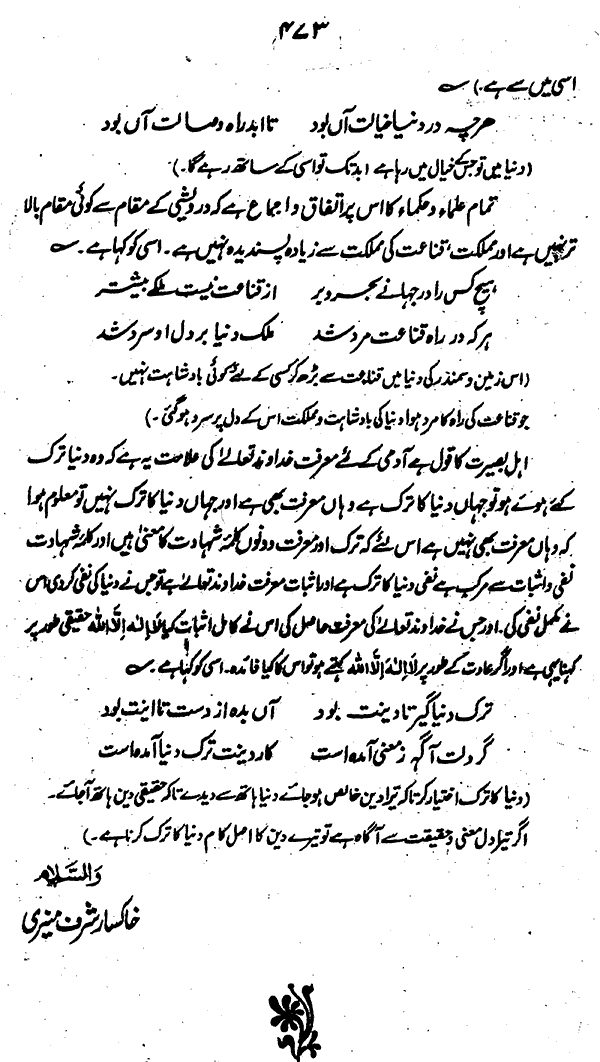 ۴۷۳
اسی میں سے ہے۔)
ہرچہ در دنیا خیالت آں بود تا ابد راہ وصالت آں بود
(دنیا میں تو جس کے خیال میں رہا ہے ابد تک تو اسی کے ساتھ رہے گا۔)
تمام علماء و حکماء کا اس پر اتفاق و اجماع ہے کہ درویشی کے مقام سے کوئی مقام بالا
تر نہیں ہے اور مملکت، قناعت کی مملکت سے زیادہ پسندیدہ نہیں ہے۔ اسی کو کہا ہے۔
ہیچ کس را در جہانے بحر و بر از قناعت نیست ملکے بیشتر
ہر کہ در راہ قناعت مرد شد ملک دنیا بر دل او سرد شد
(اس زمین و سمندر کی دنیا میں قناعت سے بڑھ کر کسی کے لئے کوئی بادشاہت نہیں۔
جو قناعت کی راہ کا مرد ہوا دنیا کی بادشاہت و مملکت اس کے دل پر سرد ہو گئی۔)
اہل بصیرت کا قول ہے آدمی کے لئے معرفت خداوند تعالےٰ کی علامت یہ ہے کہ وہ دنیا ترک
کئے ہوئے ہو تو جہاں دنیا کا ترک ہے وہاں معرفت بھی ہے اور جہاں دنیا کا ترک نہیں تو معلوم ہوا
کہ وہاں معرفت بھی نہیں ہے اس لئے کہ ترک اور معرفت دونوں کلمۂ شہادت کا معنیٰ ہیں اور کلمۂ شہادت
نفی و اثبات سے مرکب ہے نفی دنیا کا ترک ہے اور اثبات معرفت خداوند تعالےٰ ہے تو جس نے دنیا کی نفی کردی اس
نے مکمل نفی کی۔ اور جس نے خداوند تعالےٰ کی معرفت حاصل کی اس نے کامل اثبات کیا لَا اِلٰہَ اِلَّا اللہ حقیقی طور پر
کہنا یہی ہے اور اگر عادت کے طور پر لَا اِلٰہَ اِلَّا اللہ کہتے ہو تو اس کا کیا فائدہ۔ اسی کو کہا ہے۔
ترک دنیا گیر تا دینت بود آں بدہ از دست تا اینت بود
گر دلت آگہ ز معنی آمدہ است کار دینت ترک دنیا آمدہ است
(دنیا کا ترک اختیار کر تاکہ تیرا دین خالص ہو جائے دنیا ہاتھ سے دیدے تاکہ حقیقی دین ہاتھ آجائے۔
اگر تیرا دل معنی و حقیقت سے آگاہ ہے تو تیرے دین کا اصل کام دنیا کا ترک کرنا ہے۔)
والسَّلام
خاکسار شرف منیری